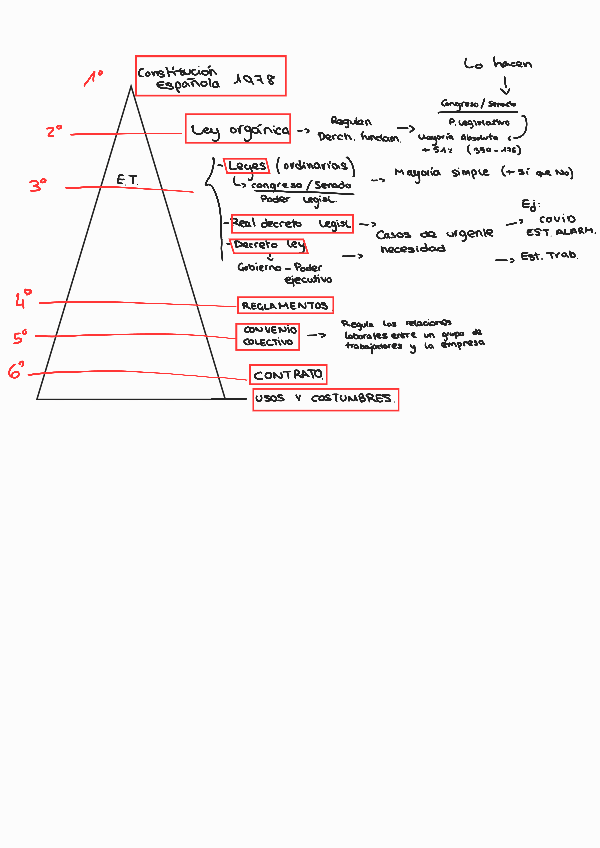 Lo hacen
1º
Constitución
Española 1978
Congreso / Senado
P. Legislativo
Mayoría Absoluta
+ 51% (350 - 176)
2º
Ley orgánica → Regulan
Derch. fundam. →
E.T.
3º
- Leyes (ordinarias)
↳ congreso / Senado
Poder Legisl.
→ Mayoría simple (+ sí que No)
- Real decreto legisl →
- Decreto ley
Gobierno - Poder
ejecutivo
→ Casos de urgente
necesidad
Ej:
→ COVID
EST. ALARM.
→ Est. Trab.
4º
REGLAMENTOS
5º
CONVENIO
COLECTIVO
→ Regula las relaciones
laborales entre un grupo de
trabajadores y la empresa
6º
CONTRATO
USOS Y COSTUMBRES.